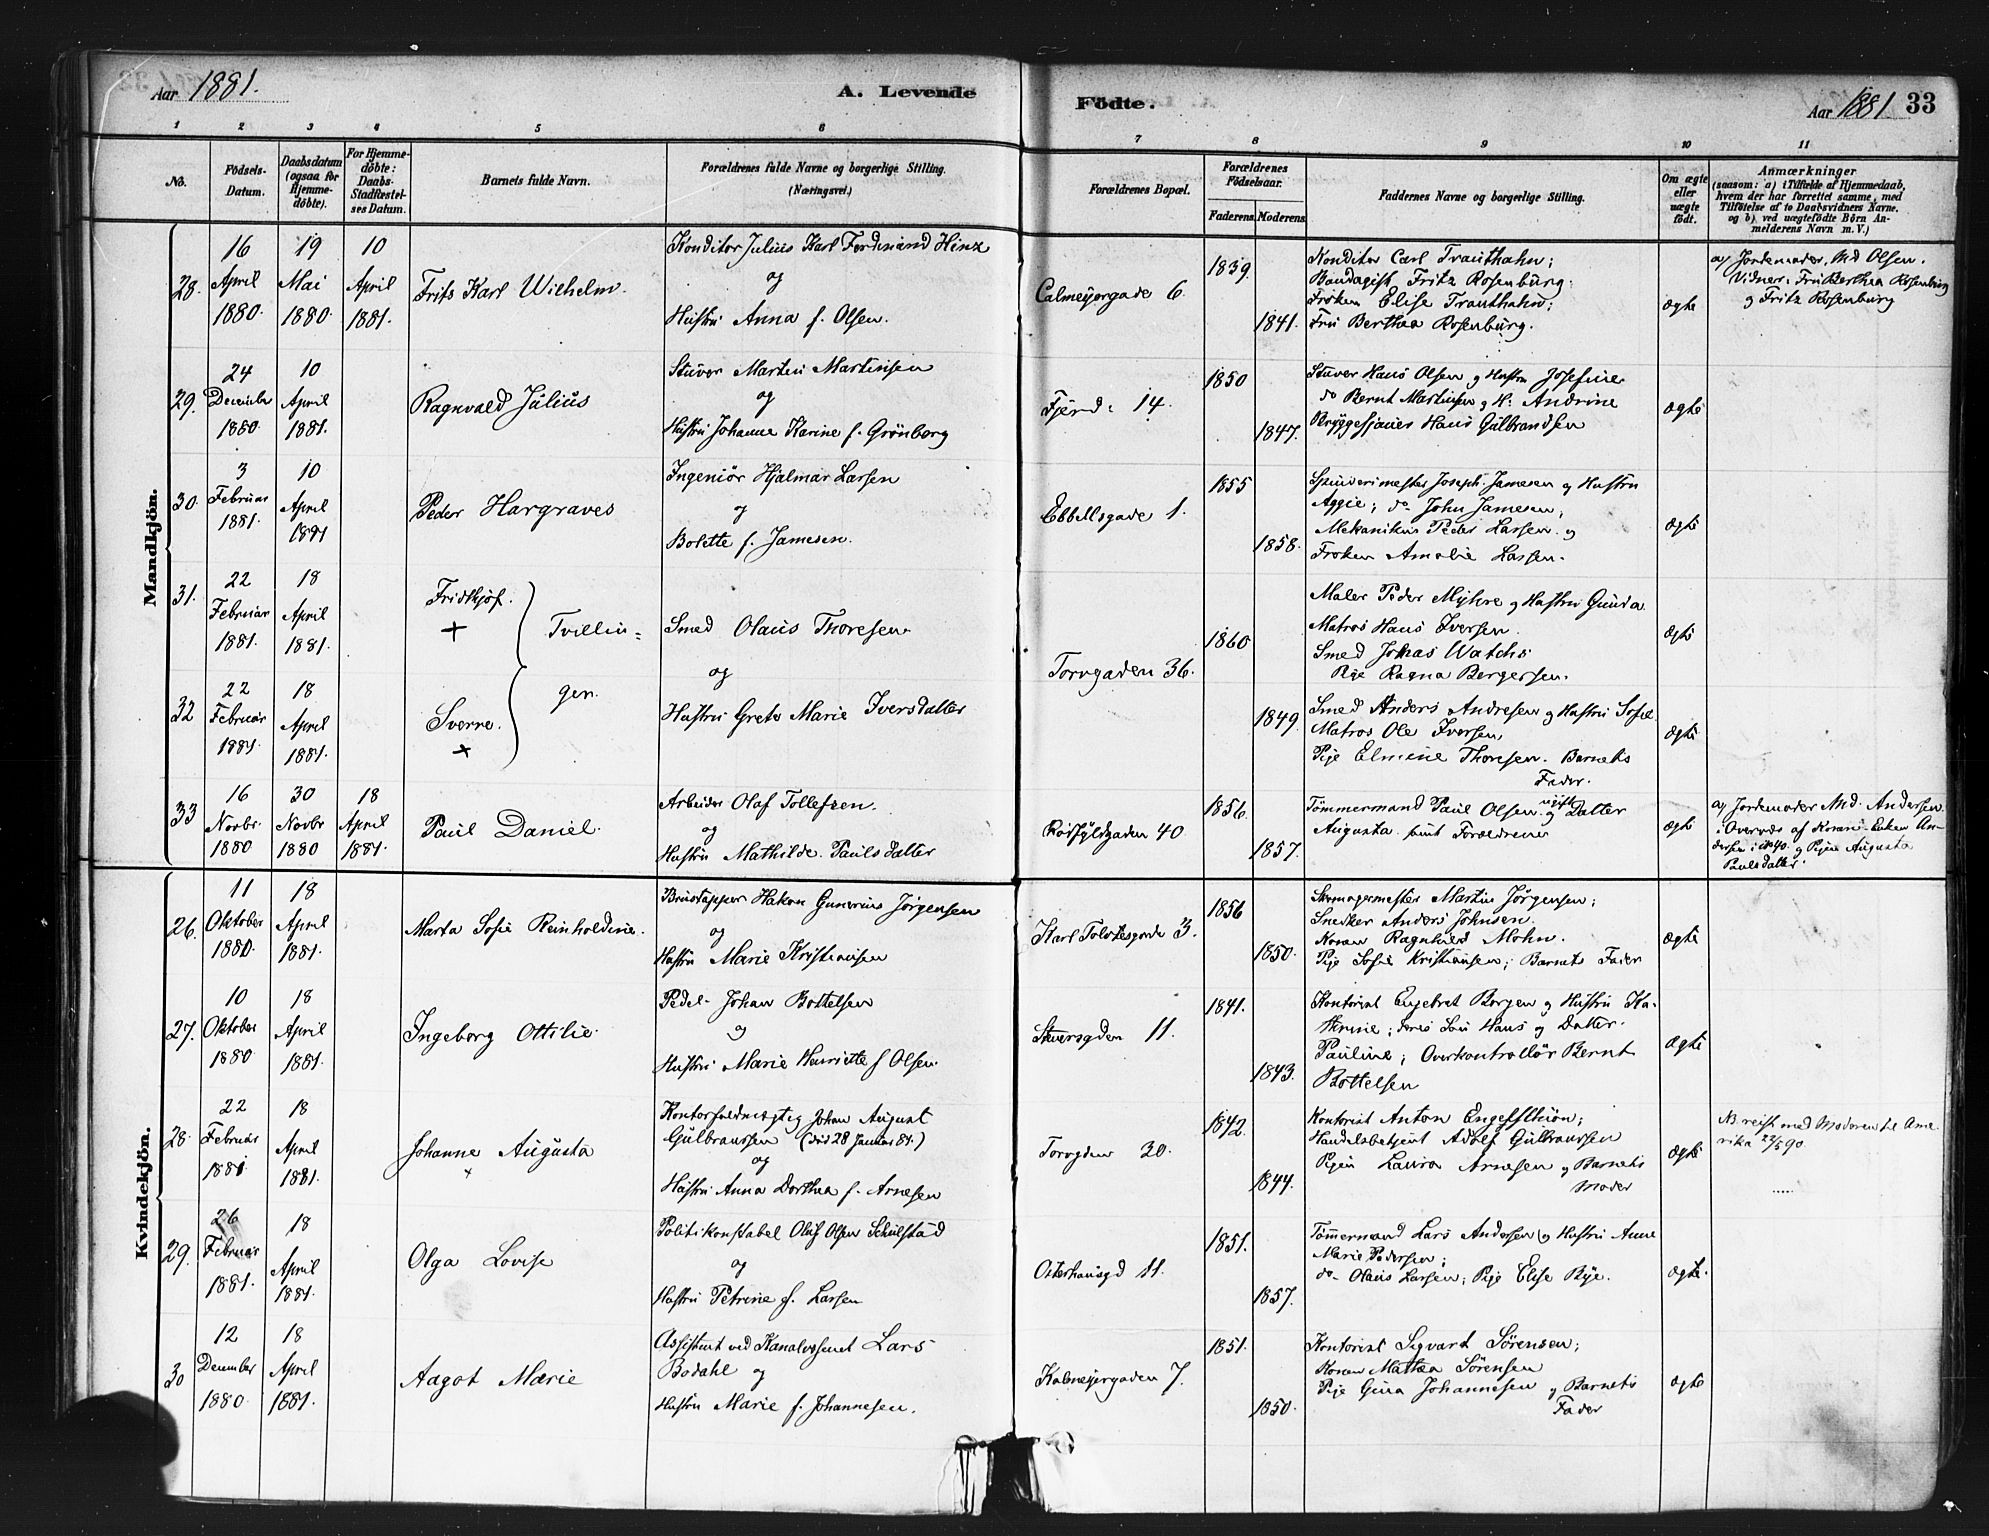 Aar 1881.
A. Levende
Födte.
Aar 1881. 33
1 2 3 4 5 6 7 8 9 10 11
No.
Födsels-
Datum.
Daabsdatum
(ogsaa for
Hjemme-
döbte).
For Hjemme-
döbte:
Daabs-
Stadfæstel-
ses Datum.
Barnets fulde Navn.
Forældrenes fulde Navne og borgerlige Stilling.
(Næringsvei.)
Forældrenes Bopæl.
Forældrenes
Födselsaar.
Faderens. Moderens.
Faddernes Navne og borgerlige Stilling.
Om ægte
eller
uægte
födt.
Anmærkninger
(saasom: a) i Tilfælde af Hjemmedaab,
hvem der har forrettet samme, med
Tilföielse af to Daabsvidners Navne,
og b) ved uægtefödte Börn An-
melderens Navn m. V.)
Mandkjön.
28.
16
April
1880.
19
Mai
1880.
10
April
1881.
Frits Karl Wilhelm.
Konditor Julius Karl Ferdinand Hinz
og
Hustru Anna f. Olsen.
Calmeyergade 6.
1839.
1841.
Konditor Carl Trauthahn;
Bandagist Fritz Rosenburg;
Frøken Elise Trauthahn;
Fru Berthea Rosenburg.
ægte
a) Jordemoder Md Olsen.
Vidner: Fru Berthea Rosenburg
og Fritz Rosenburg
29.
24
December
1880.
10
April
1881.
Ragnvald Julius
Stuver Martin Martinsen
og
Hustru Johanne Karine f. Grönberg
14.
1850
1847.
Stuver Hans Olsen og Hustru Josefine
do Bernt Martinsen og H: Andrine
Bryggesjauer Hans Gulbrandsen
ægte
30.
3
Februar
1881.
10
April
1881
Peder Hargraves
Ingeniör Hjalmar Larsen
og
Bolette f. Jamesen.
Ebbellsgade 1.
1855
1858.
Spinderimester Joseph Jamesen og Hustru
Aggie; do John Jamesen;
Mekanikus Peder Larsen og
Frøken Amalie Larsen.
ægte
31.
22
Februar
1881.
18
April
1881.
Fridtkjof.
+
Tvillin-
Smed Olaus Thoresen
og
Torvgaden 36.
1860
Maler Peder Myhre og Hustru Gunda
Matros Hans Iversen.
Smed Johas
Pige Ragna Bergersen.
ægte
32
22
Februar
1881.
18
April
1881.
Sverre.
+
ger.
Hustru Grete Marie Iversdatter
1849
Smed Anders Andresen og Hustru Sofie.
Matros Ole Iversen,
Pige Elmine Thoresen. Barnets
Fader.
ægte
33
16
Novbr.
1880
30
Novbr
1880
18
April
1881.
Paul Daniel.
Arbeider Olaf Tollefsen.
og
Hustru Mathilde Paulsdatter
40
1856.
1857.
Tömmermand Paul Olsen og ugift Datter
Augusta samt Forældrene
ægte
a) Jordemoder Md. Andersen
i Overvær af Konen An-
dersen i No 40. og Pigen Augusta
Paulsdatter.
Kvindekjön.
26.
11
Oktober
1880.
18
April
1881.
Marta Sofie Reinholdine.
Brustapper Hakon Gunerius Jörgensen
og
Hustru Marie Kristiansen
Karl 3.
1856
1850.
Skomagermester Martin Jörgensen;
Snedker Anders Johnsen.
Konen Ragnhild Mohn.
Pige Sofie Kristiansen; Barnets Fader
ægte
27.
10
Oktober
1880
18
April
1881.
Ingeborg Ottilie.
Pedel Johan Bottelsen
og
Hustru Marie Henriette f Olsen.
11.
1841.
1843.
Kontorist Engebret Borgen og Hustru Ka-
thrine; deres Søn Hans og Datter
Pauline; Overkontrollör Bernt
Bottelsen
ægte
28.
22
Februar
1881
18
April
1881.
Johanne Augusta
+
Kontorfuldmægtig Johan August
Gulbranssen (död 28 Januar 81.)
og
Hustru Anna Dorthea f. Arnesen
Torvgden 20.
1842.
1844.
Kontorist Anton
Handelsbetjent Adolf Gulbranssen
Pigen Laura Arnesen og Barnets
Moder
ægte
NB. reist med Moderen til Ame-
rika 23/5 90.
29.
26
Februar
1881.
18
April
1881.
Olga Lovise
Politikonstabel Oluf Olsen Schulstad
og
Hustru Petrine f. Larsen
Osterhausgd 11.
1851.
1857.
Tömmermand Lars Andersen og Hustru Anne
Marie Pedersen;
do Olaus Larsen; Pige Elise Bye.
ægte.
30
12
December
1880.
18
April
1881.
Aagot Marie
Assistent ved Kanalvæsenet Lars
Bodahl og
Hustru Marie f. Johannesen.
Kalmeyergaden 7.
1851.
1850.
Kontorist Sigvart Sörensen;
Konen Mathea Sörensen
Pige Gina Johannesen og Barnets
Fader
ægte